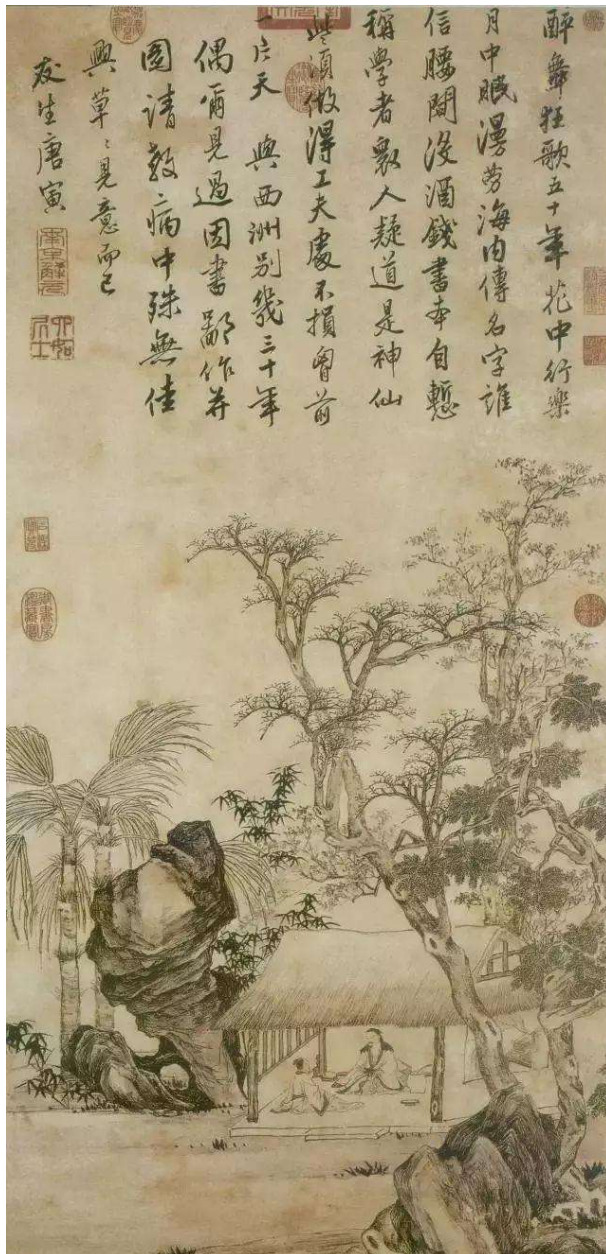 醉舞狂歌五十年花中行樂
月中眠漫勞海内傳名字誰
信腰間沒酒錢書本自慙
稱學者眾人疑道是神仙
些須做得工夫處不損胷前
一片天 與西洲別幾三十年
偶爾見過因書鄙作并
圖請教病中殊無佳
興草〻見意而已
友生唐寅
南京解元
六如居士